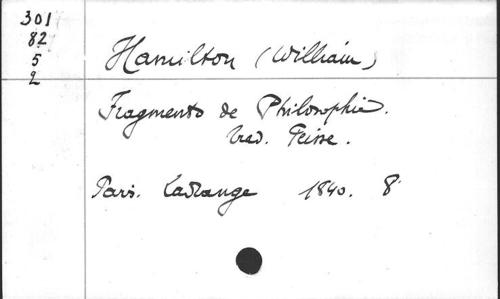 301
82
5
2
Hamilton (William)
Fragments de Philosophie.
trad. Peisse.
Paris. Ladrange 1840. 8°